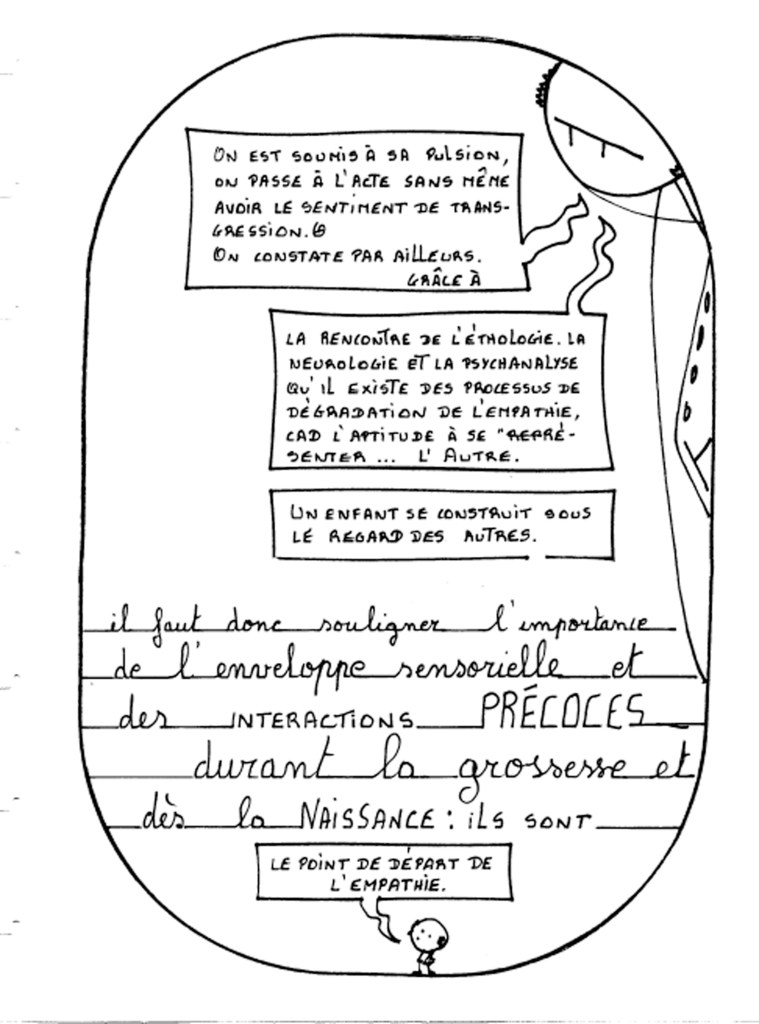 ON EST SOUMIS À SA PULSION,
ON PASSE À L'ACTE SANS MÊME
AVOIR LE SENTIMENT DE TRANS-
GRESSION.
ON CONSTATE PAR AILLEURS.
GRÂCE À
LA RENCONTRE DE L'ÉTHOLOGIE. LA
NEUROLOGIE ET LA PSYCHANALYSE
QU'IL EXISTE DES PROCESSUS DE
DÉGRADATION DE L'EMPATHIE,
CAD L'APTITUDE À SE "REPRÉ-
SENTER ... L'AUTRE.
UN ENFANT SE CONSTRUIT SOUS
LE REGARD DES AUTRES.
il faut donc souligner l'importance
de l'enveloppe sensorielle et
des INTERACTIONS PRÉCOCES
durant la grossesse et
dès la NAISSANCE : iLS SONT
LE POINT DE DÉPART DE
L'EMPATHIE.